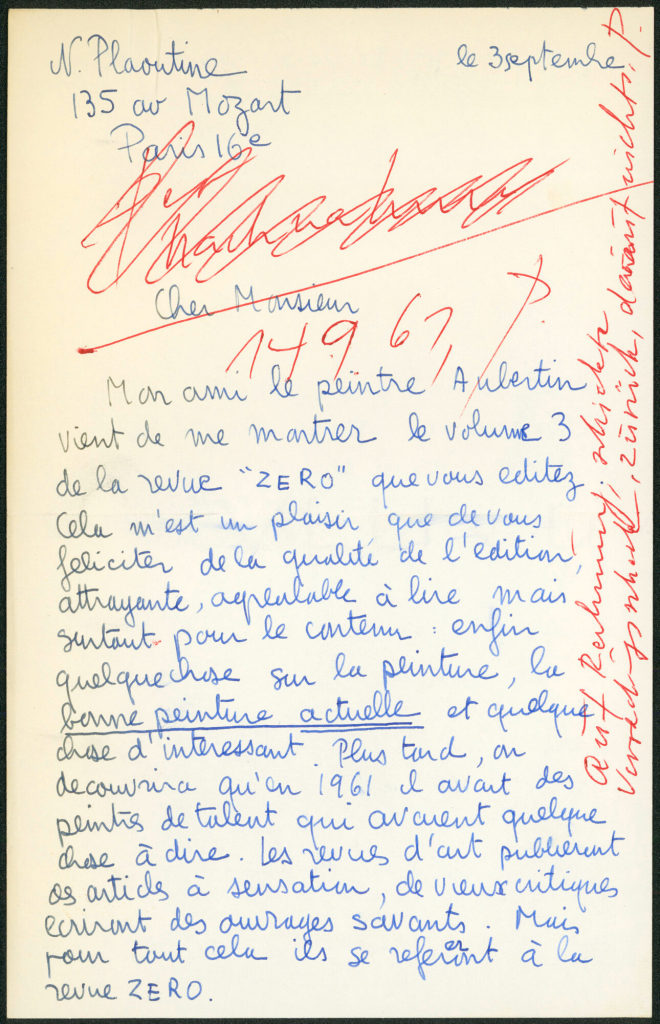 N. Plaoutine
le 3 septembre
135 av Mozart
Paris 16e
Cher Monsieur
14 9 61, P.
Mon ami le peintre Aubertin
vient de me montrer le volume 3
de la revue "ZERO" que vous editez
Cela m'est un plaisir que de vous
feliciter de la qualité de l'edition,
attrayante, agrealable à lire mais
surtout pour le contenu : enfin
quelque chose sur la peinture, la
bonne peinture actuelle et quelque
chose d'interessant. Plus tard, on
decouvrira qu'en 1961 il avait des
peintres de talent qui avaient quelque
chose à dire. Les revues d'art publieront
des articles à sensation, de vieux critiques
ecriront des ouvrages savants. Mais
pour tout cela ils se refereront à la
revue ZERO.
auf Rechnung, schickte
zurück, darauf nichts, P.